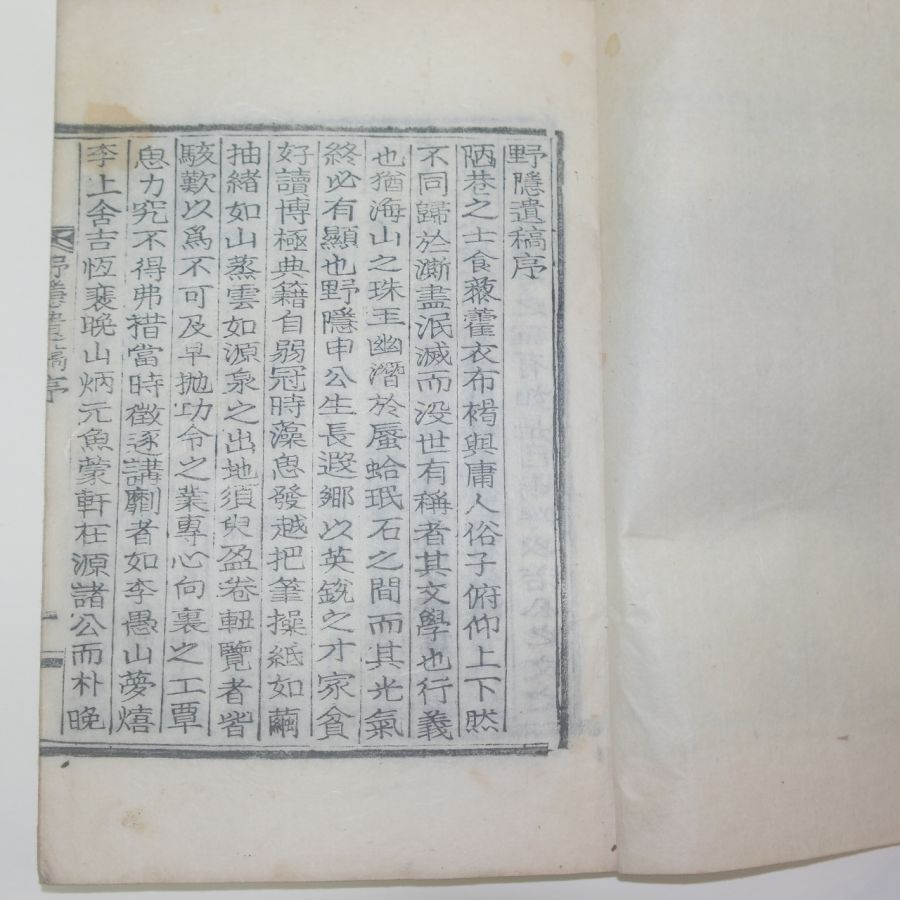 野隱遺稿序
陋巷之士食藜藿衣布褐與庸人俗子俯仰上下然
不同歸於澌盡泯滅而沒世有稱者其文學也行義
也猶海山之珠玉幽潛於蜃蛤珉石之間而其光氣
終必有顯也野隱申公生長遐鄉以英銳之才家貧
好讀博極典籍自弱冠時藻思發越把筆操紙如繭
抽緖如山蒸雲如源泉之出地須臾盈卷軸覽者皆
駭歎以爲不可及早抛功令之業專心向裏之工覃
思力究不得弗措當時徵逐講劘者如李愚山夢熺
李上舍吉恆裵晩山炳元魚蒙軒在源諸公而朴晩
野隱遺稿序